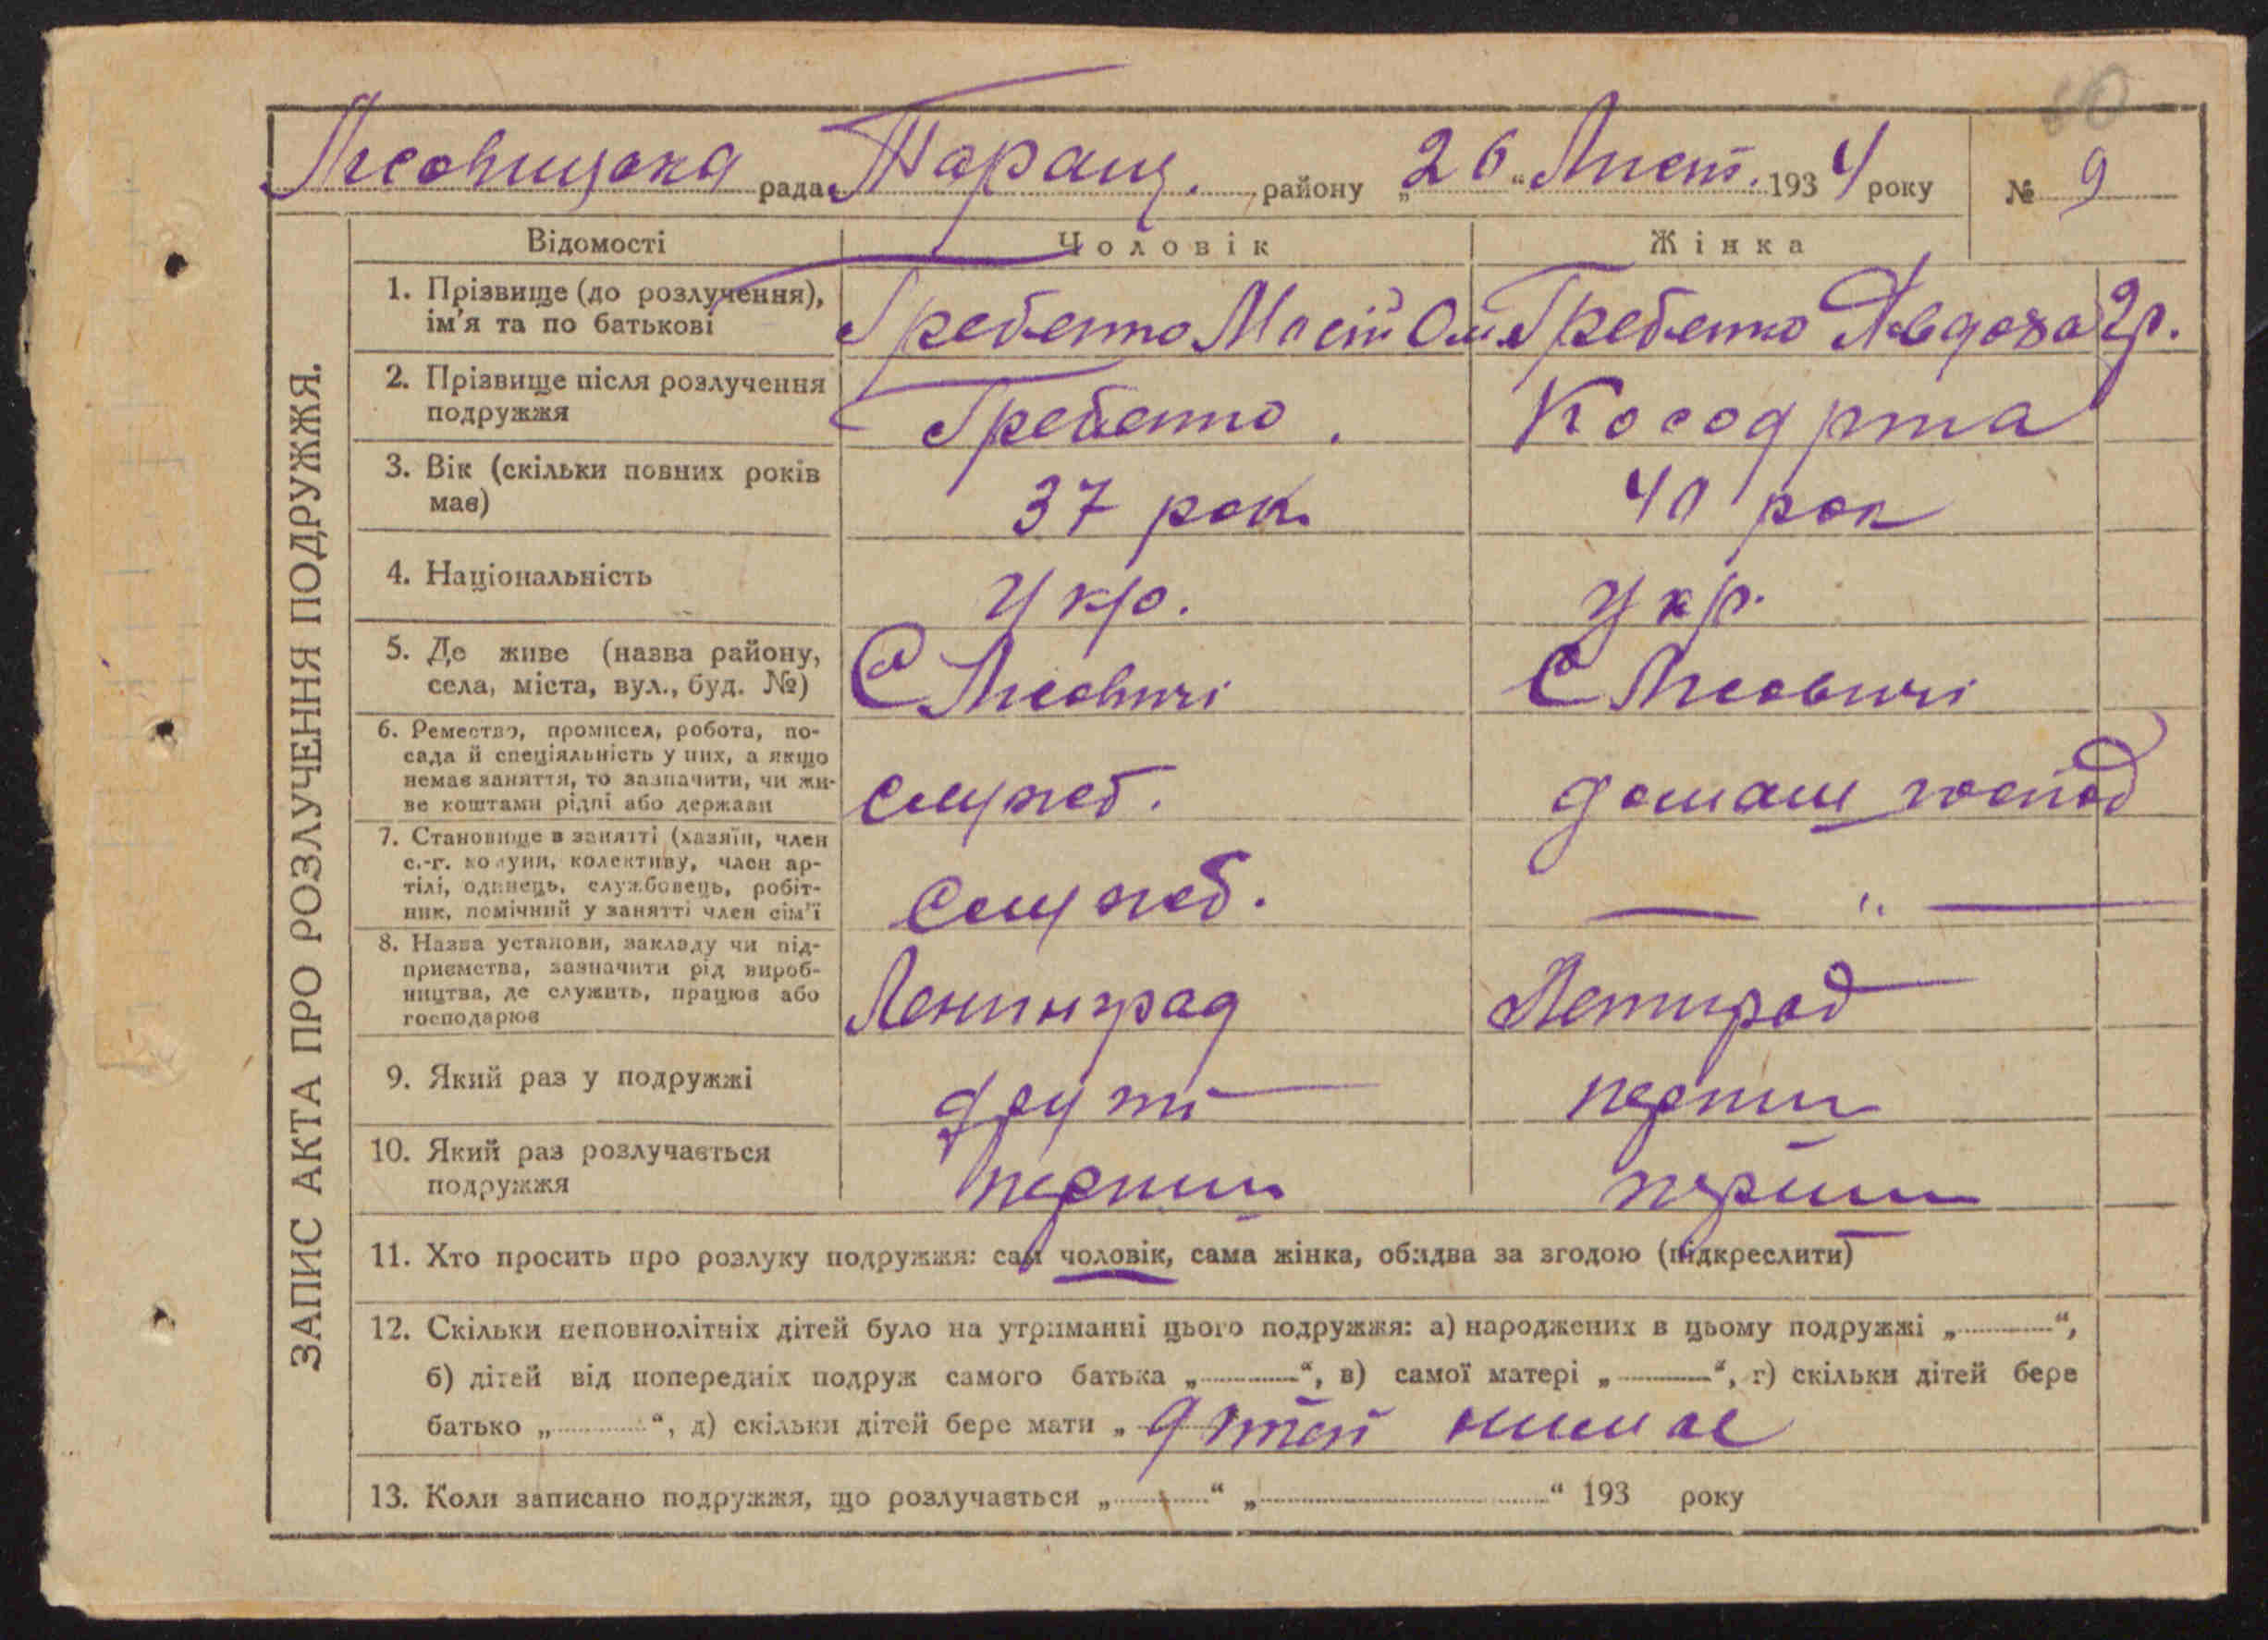 Лісовицька рада Таращ. району „26“ Лист. 1934 року № 9
ЗАПИС АКТА ПРО РОЗЛУЧЕННЯ ПОДРУЖЖЯ.
Відомості Чоловік Жінка
1. Прізвище (до розлучення), ім'я та по батькові Гребенко Гребенко Явдоха Гр.
2. Прізвище після розлучення подружжя Гребенко.
3. Вік (скільки повних років має) 37 рок. 40 рок
4. Національність Укр. Укр.
5. Де живе (назва району, села, міста, вул., буд. №) С Лісовичі С Лісовичі
6. Ремество, промисел, робота, по-
сада й спеціяльність у них, а якщо
немає заняття, то зазначити, чи жи-
ве коштами рідні або держави служб. домаш господ
7. Становище в занятті (хазяїн, член
с.-г. комуни, колективу, член ар-
тілі, одинець, службовець, робіт-
ник, помічний у занятті член сім'ї служб. — " —
8. Назва установи, закладу чи під-
приємства, зазначити рід вироб-
ництва, де служить, працює або
господарює Ленинград Ленинград
9. Який раз у подружжі другий перший
10. Який раз розлучається подружжя перший перший
11. Хто просить про розлуку подружжя: сам чоловік, сама жінка, обидва за згодою (підкреслити)
12. Скільки неповнолітніх дітей було на утриманні цього подружжя: а) народжених в цьому подружжі „ “,
б) дітей від попередніх подруж самого батька „ “, в) самої матері „ “, г) скільки дітей бере
батько „ “, д) скільки дітей бере мати „ дітей нимає
13. Коли записано подружжя, що розлучається „ “ „ “ 193 року